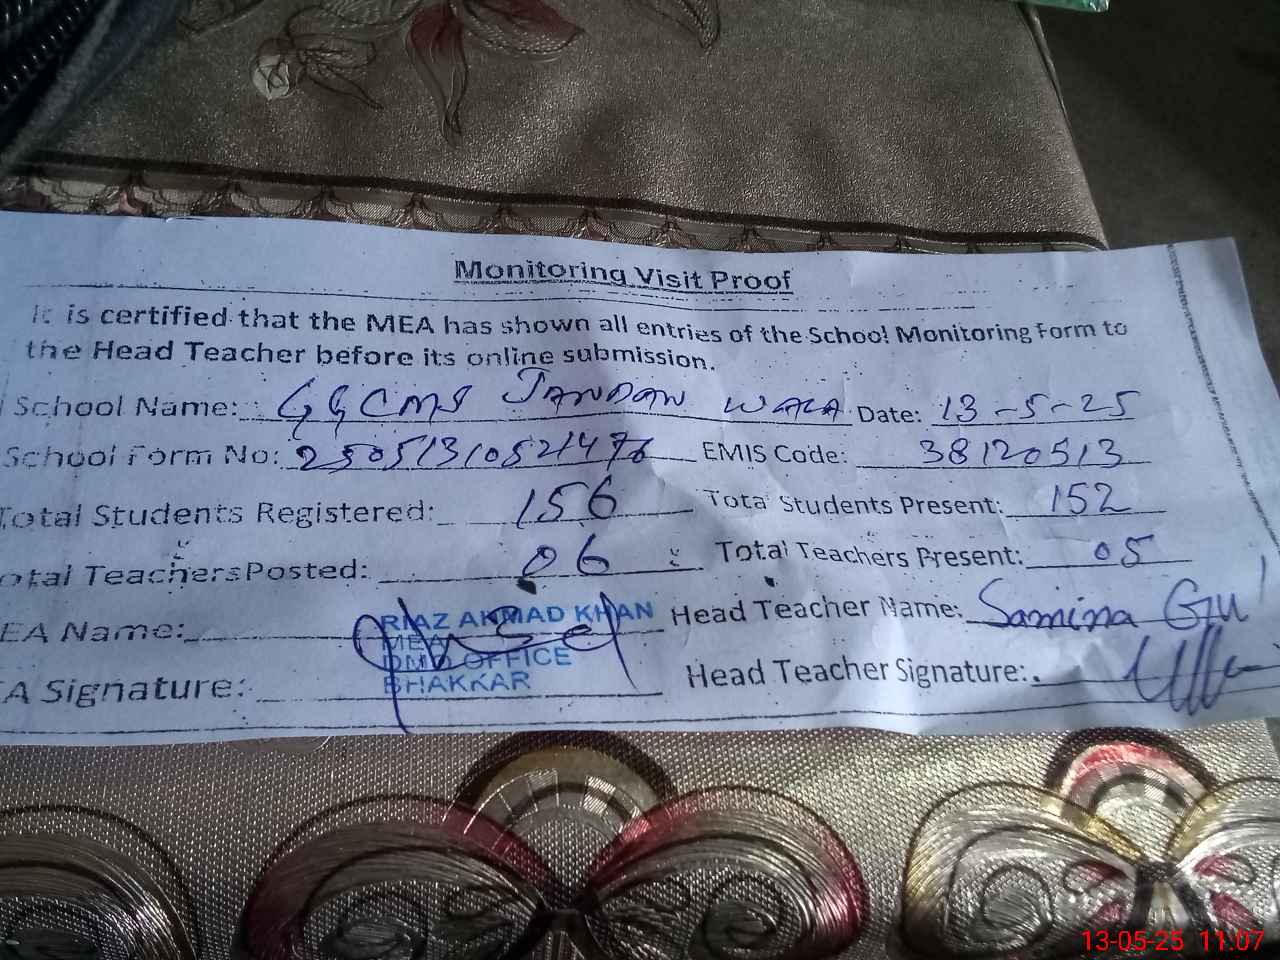 Monitoring Visit Proof
It is certified that the MEA has shown all entries of the School Monitoring Form to
the Head Teacher before its online submission.
School Name: GGCMS JANDAN WALA Date: 13-5-25
School Form No: EMIS Code: 38120513
Total Students Registered: 156 Total Students Present: 152
otal Teachers Posted: 06 Total Teachers Present: 05
EA Name: RIAZ AHMAD KHAN Head Teacher Name: Samina Gul
MEA
DMO OFFICE
A Signature: BHAKKAR Head Teacher Signature:
13-05-25 11:07